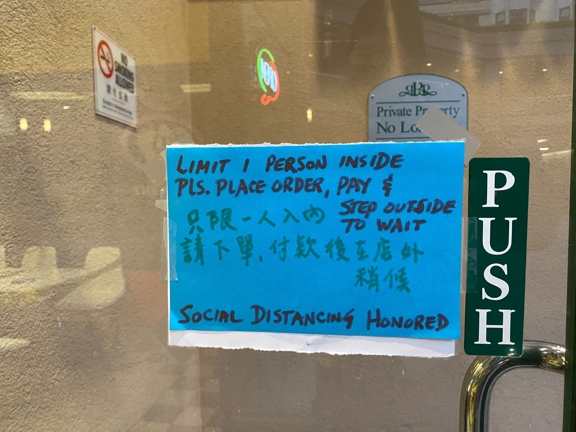 NO
SMOKING
ALLOWED
Private Property
No Lo
LIMIT 1 PERSON INSIDE
PLS. PLACE ORDER, PAY &
STEP OUTSIDE
TO WAIT
只限一人入內
請下單,付款後在店外
稍候
SOCIAL DISTANCING HONORED
PUSH